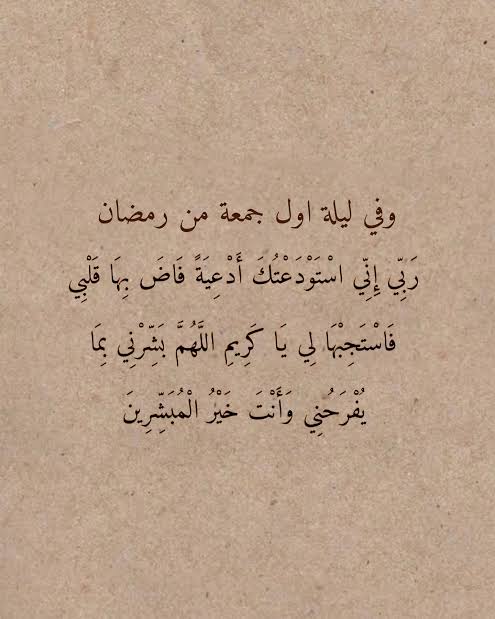 وفي ليلة اول جمعة من رمضان
رَبِّي إِنِّي اسْتَوْدَعْتُكَ أَدْعِيَةً فَاضَ بِهَا قَلْبِي
فَاسْتَجِبْهَا لِي يَا كَرِيمِ اللَّهُمَّ بَشِّرْنِي بِمَا
يُفْرَحُنِي وَأَنْتَ خَيْرُ الْمُبَشِّرِينَ